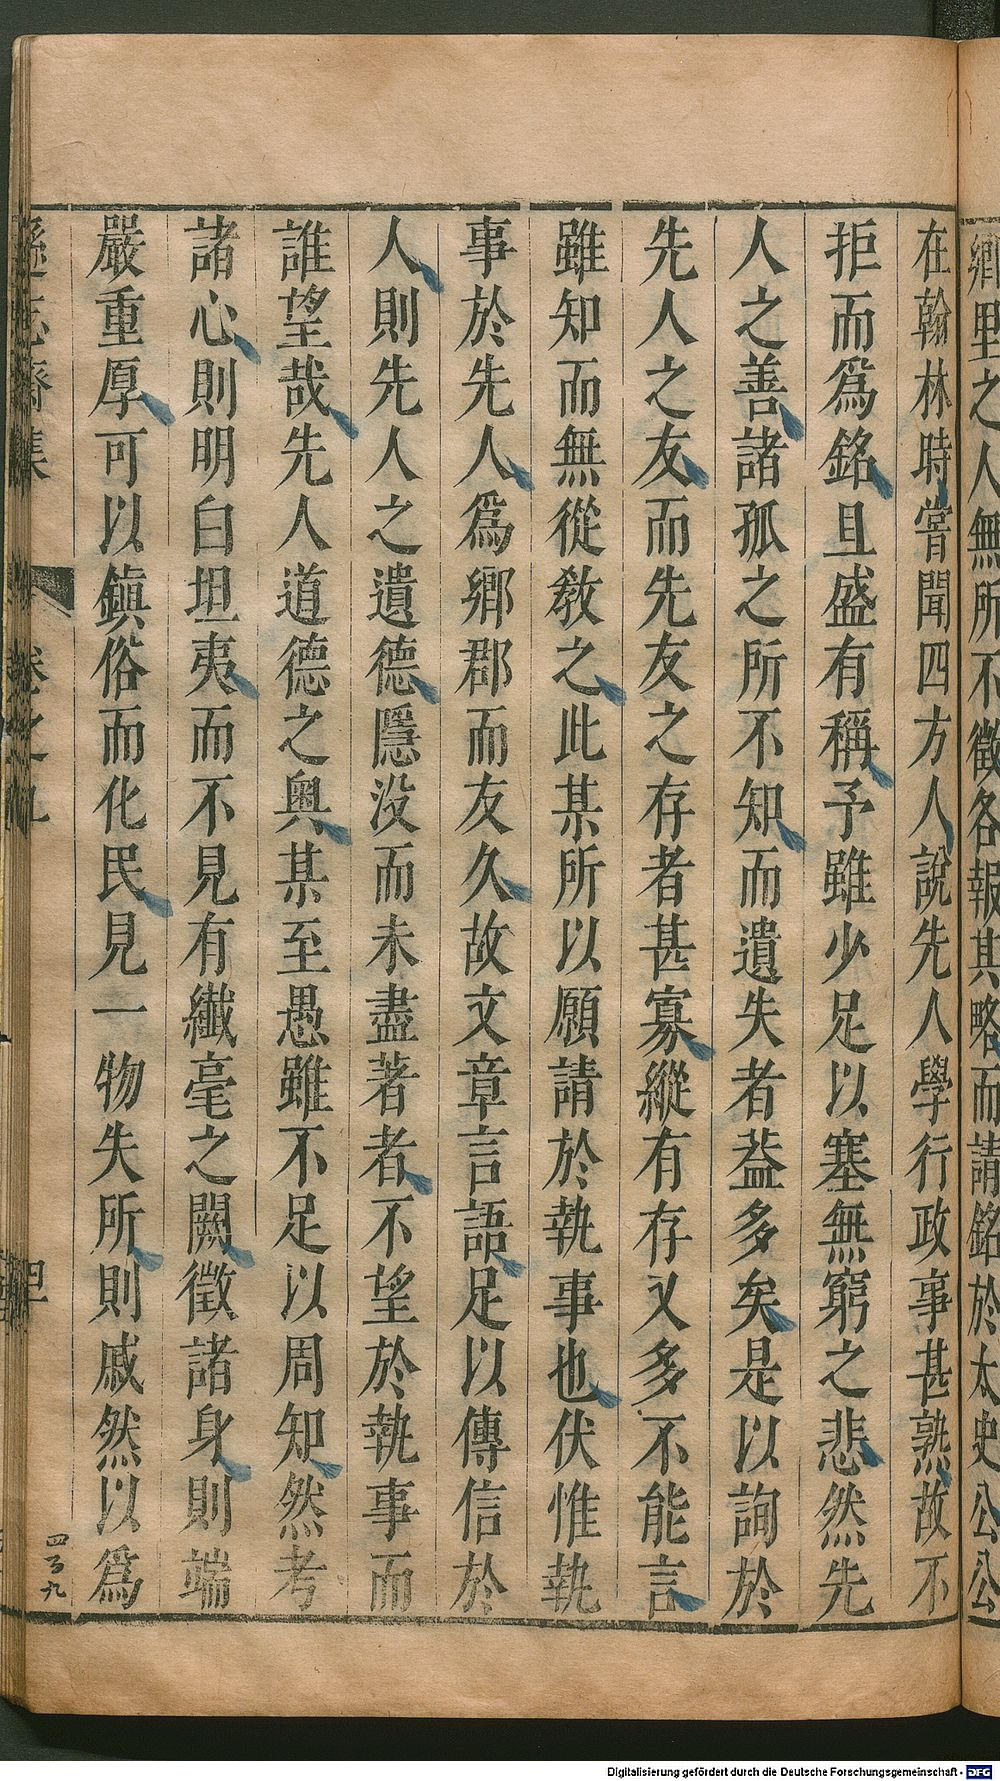 鄉里之人無所不徵各報其略而請銘於太史公公
在翰林時嘗聞四方人說先人學行政事甚熟故不
拒而爲銘且盛有稱予雖少足以塞無窮之悲然先
人之善諸孤之所不知而遺失者葢多矣是以詢於
先人之友而先友之存者甚寡縱有存乂多不能言
雖知而無從敎之此某所以願請於執事也伏惟執
事於先人爲鄉郡而友久故文章言語足以傳信於
人則先人之遺德隱没而未盡著者不望於執事而
誰望哉先人道德之奧某至愚雖不足以周知然考
諸心則明白坦夷而不見有纖毫之闕徵諸身則端
嚴重厚可以鎮俗而化民見一物失所則戚然以爲
遜志齋集 卷之九
四百九
Digitalisierung gefördert durch die Deutsche Forschungsgemeinschaft - DFG